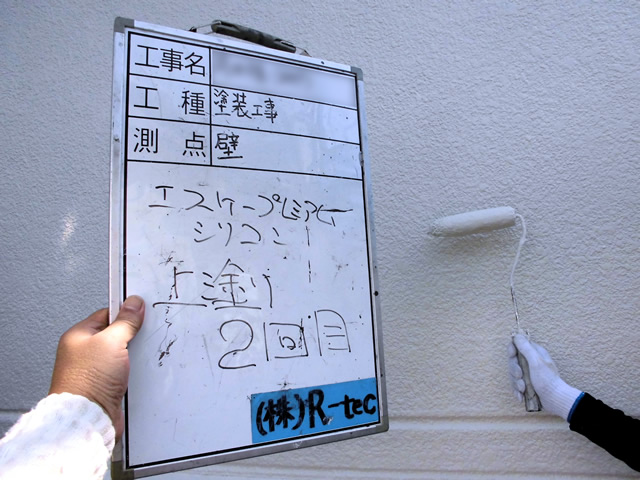 工事名
工種 塗装工事
測点 壁
エスケープレミアム
シリコン
上塗り
2回目
(株)R-tec